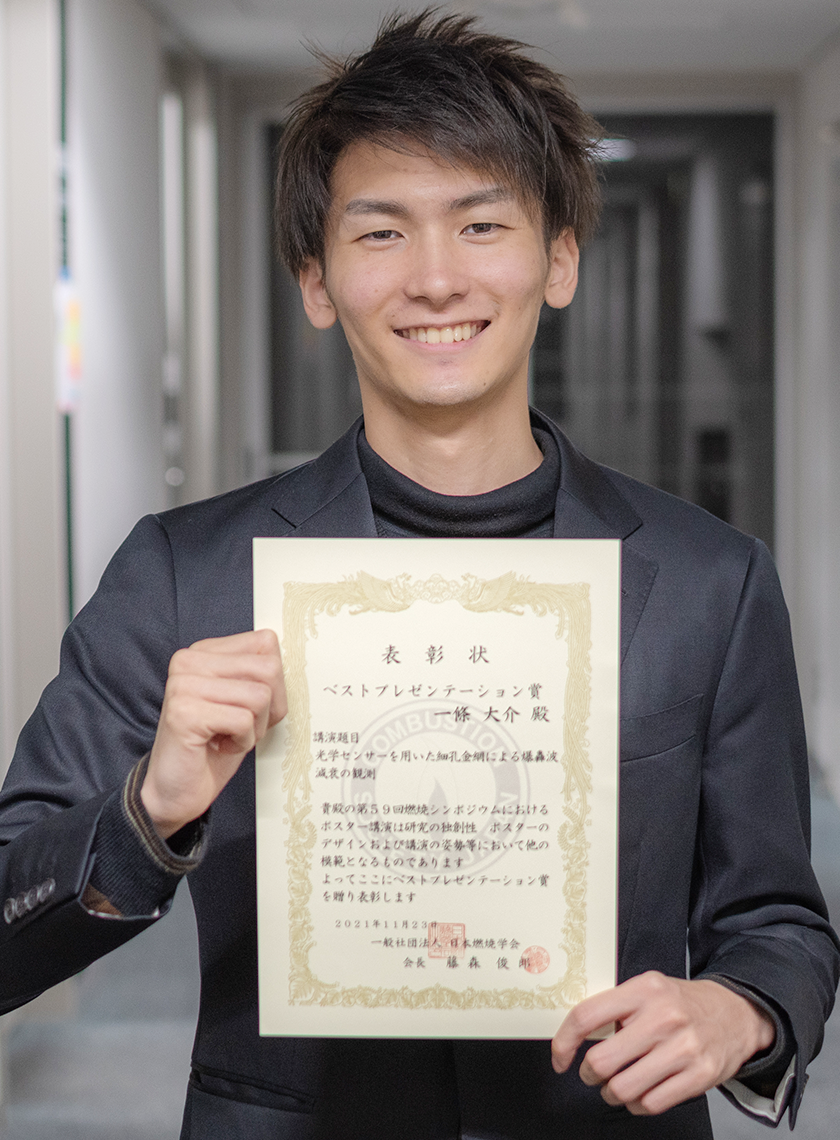 表彰状
ベストプレゼンテーション賞
一條 大介 殿
講演題目
光学センサーを用いた細孔金網による爆轟波
減衰の観測
貴殿の第59回燃焼シンポジウムにおける
ポスター講演は研究の独創性 ポスターの
デザインおよび講演の姿勢等において他の
模範となるものであります
よってここにベストプレゼンテーション賞
を贈り表彰します
2021年11月23日
一般社団法人 日本燃焼学会
会長 藤森 俊郎
COMBUSTION